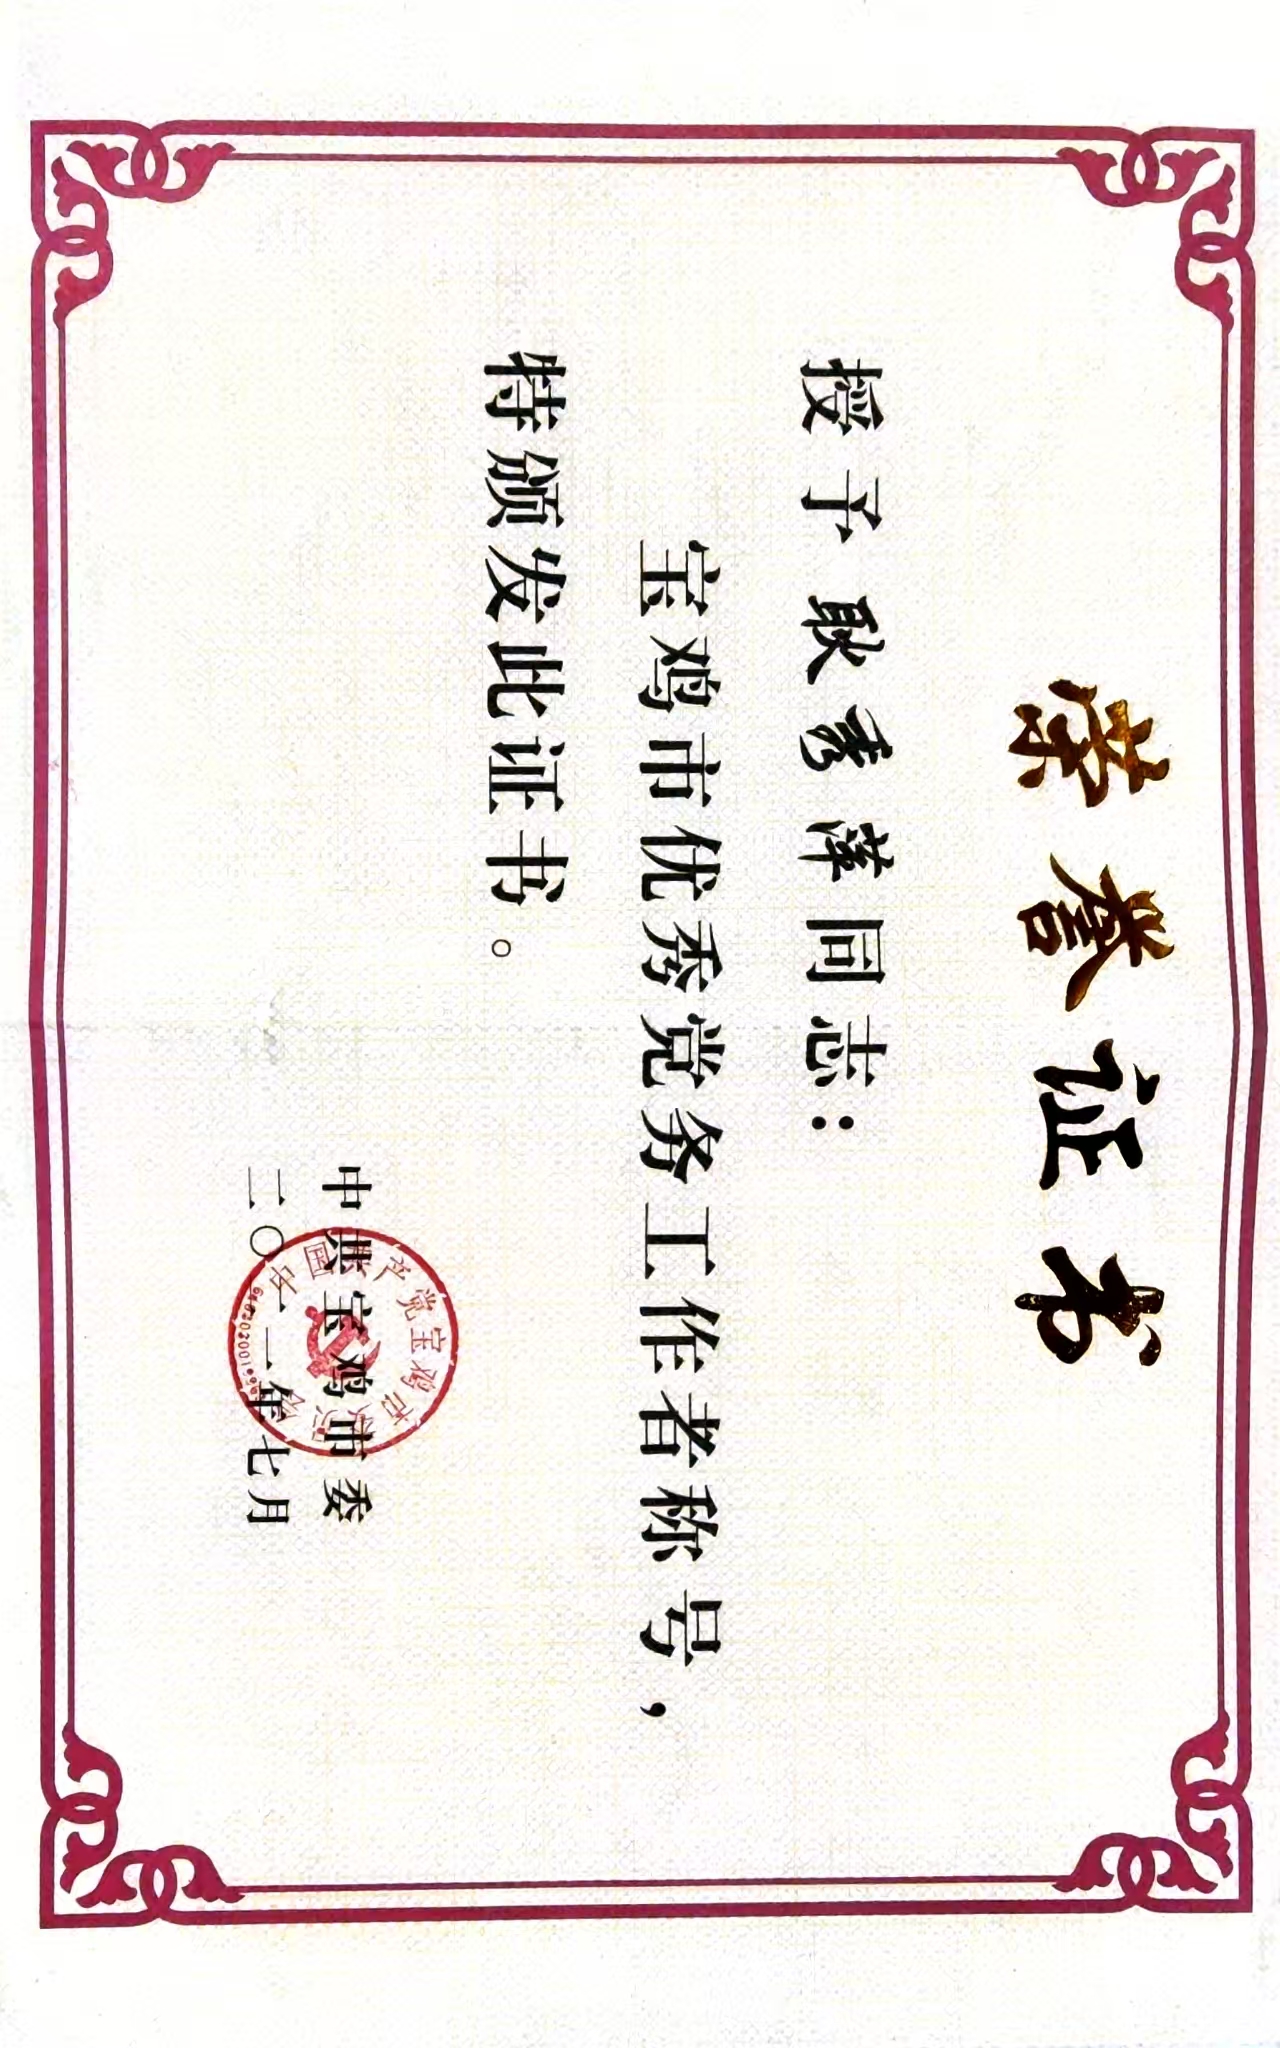 荣誉证书
授予耿秀萍同志：
宝鸡市优秀党务工作者称号，
特颁发此证书。
中共宝鸡市委
二〇二一年七月
中国共产党宝鸡市委员会